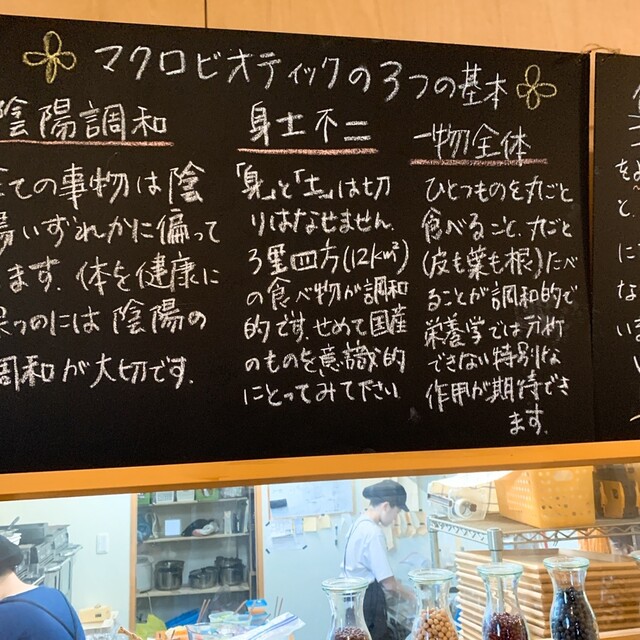 マクロビオティックの3つの基本
陰陽調和
全ての事物は陰
陽いずれかに偏って
ます。体を健康に
保つのには陰陽の
調和が大切です。
身土不二
「身」と「土」は切
りはなせません。
3里四方(12km²)
の食べ物が調和
的です。せめて国産
のものを意識的
にとってみて下さい
一物全体
ひとつものを丸ごと
食べること、丸ごと
(皮も葉も根)たべ
ることが調和的で
栄養学では分析
できない特別な
作用が期待でき
ます。